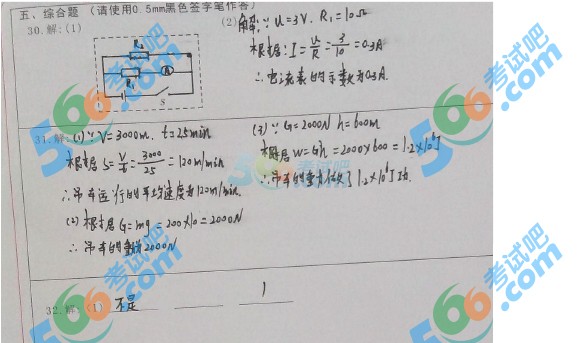 五、综合题（请使用0.5mm黑色签字笔作答）
30.解：(1)
R₂
R₁
A
S
(2) 解：∵U=3V. R₁=10Ω
根据：I=U/R=3/10=0.3A
∴电流表的示数为0.3A.
31.解：(1)∵V=3000m. t=25min
根据 S=V/t=3000/25=120m/min
∴吊车运行的平均速度为120m/min.
(2) 根据 G=mg=200×10=2000N
∴吊车的重为2000N
(3) ∵G=2000N h=600m
根据 W=Gh=2000×600=1.2×10⁶J
∴吊车的重力做了1.2×10⁶J功.
32.解：(1) 不是 1
566考试吧
566考试吧
566考试吧
566考试吧